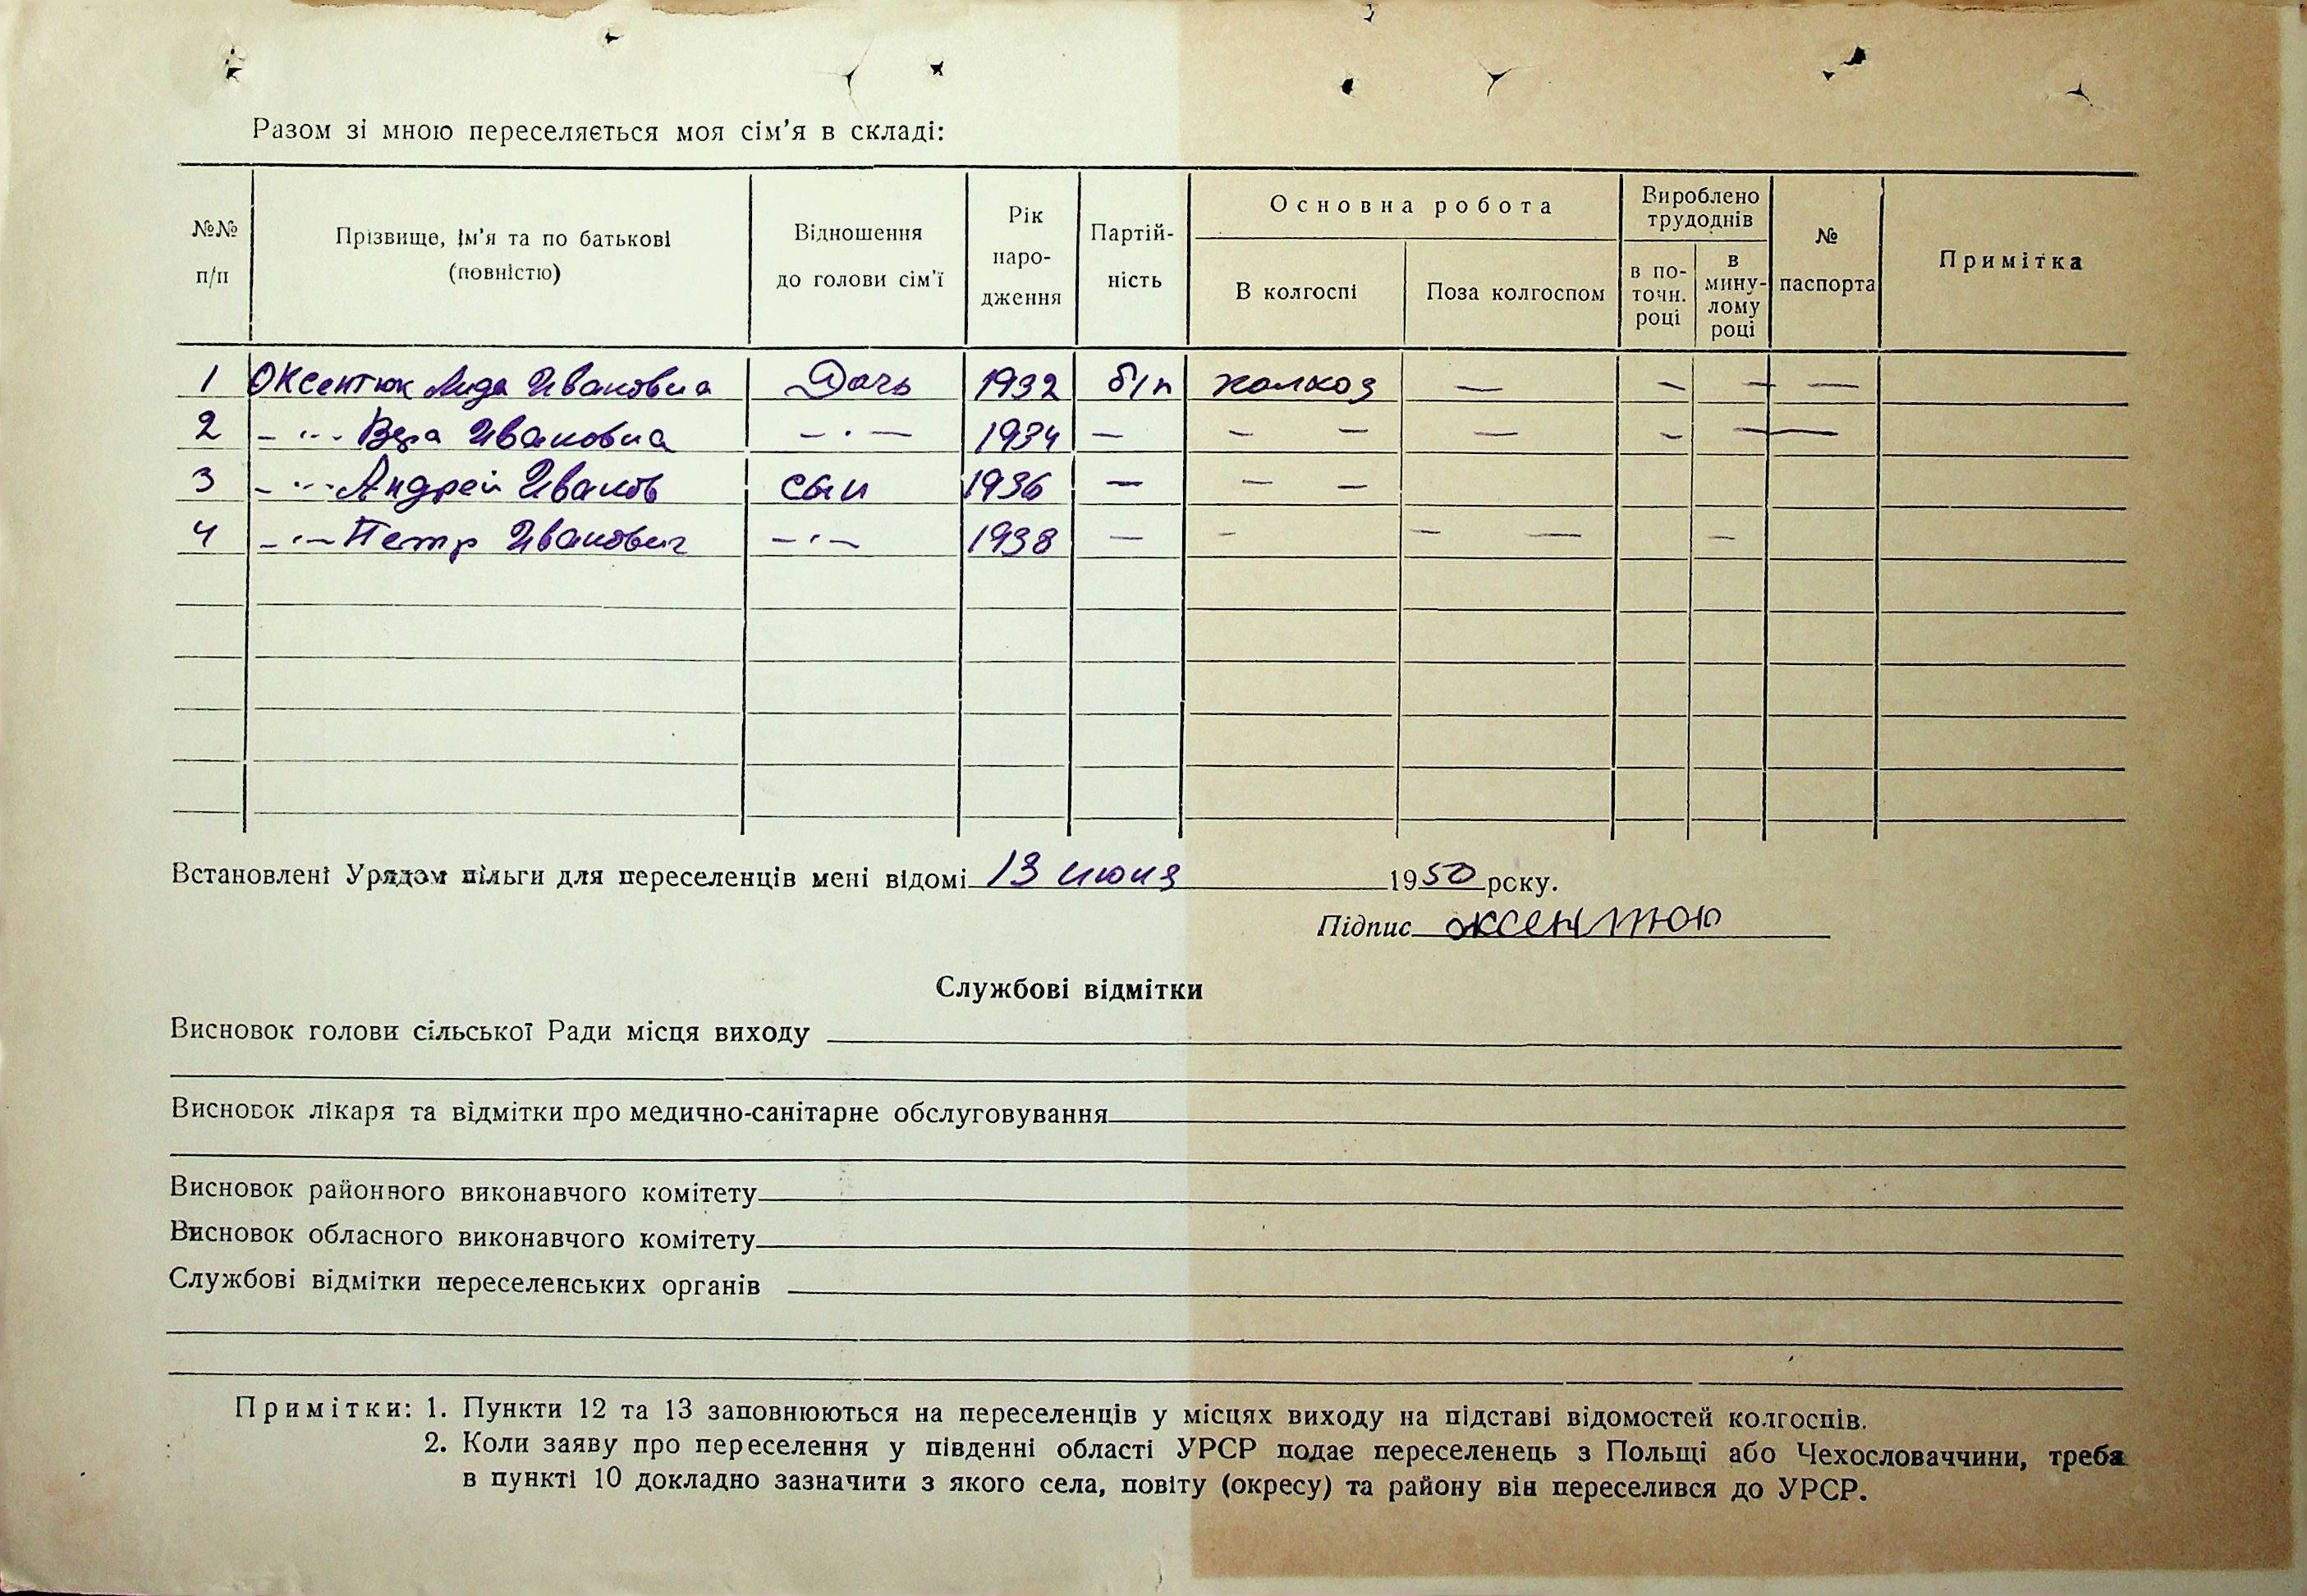 Разом зі мною переселяється моя сім'я в складі:
№№ п/п | Прізвище, ім'я та по батькові (повністю) | Відношення до голови сім'ї | Рік народження | Партійність | Основна робота: В колгоспі | Поза колгоспом | Вироблено трудоднів: в поточн. році | в минулому році | № паспорта | Примітка
1 Оксентюк Лида Ивановна Дочь 1932 б/п колхоз — — — —
2 – ·· - Вера Ивановна — · — 1934 — — — — — — —
3 – ·· - Андрей Иванов сын 1936 — — —
4 – · – Петр Иванович – · – 1938 — — — — —
Встановлені Урядом пільги для переселенців мені відомі 13 июня 1950 року.
Підпис оксентюк
Службові відмітки
Висновок голови сільської Ради місця виходу
Висновок лікаря та відмітки про медично-санітарне обслуговування
Висновок районного виконавчого комітету
Висновок обласного виконавчого комітету
Службові відмітки переселенських органів
Примітки: 1. Пункти 12 та 13 заповнюються на переселенців у місцях виходу на підставі відомостей колгоспів.
2. Коли заяву про переселення у південні області УРСР подає переселенець з Польщі або Чехословаччини, треба
в пункті 10 докладно зазначити з якого села, повіту (окресу) та району він переселився до УРСР.